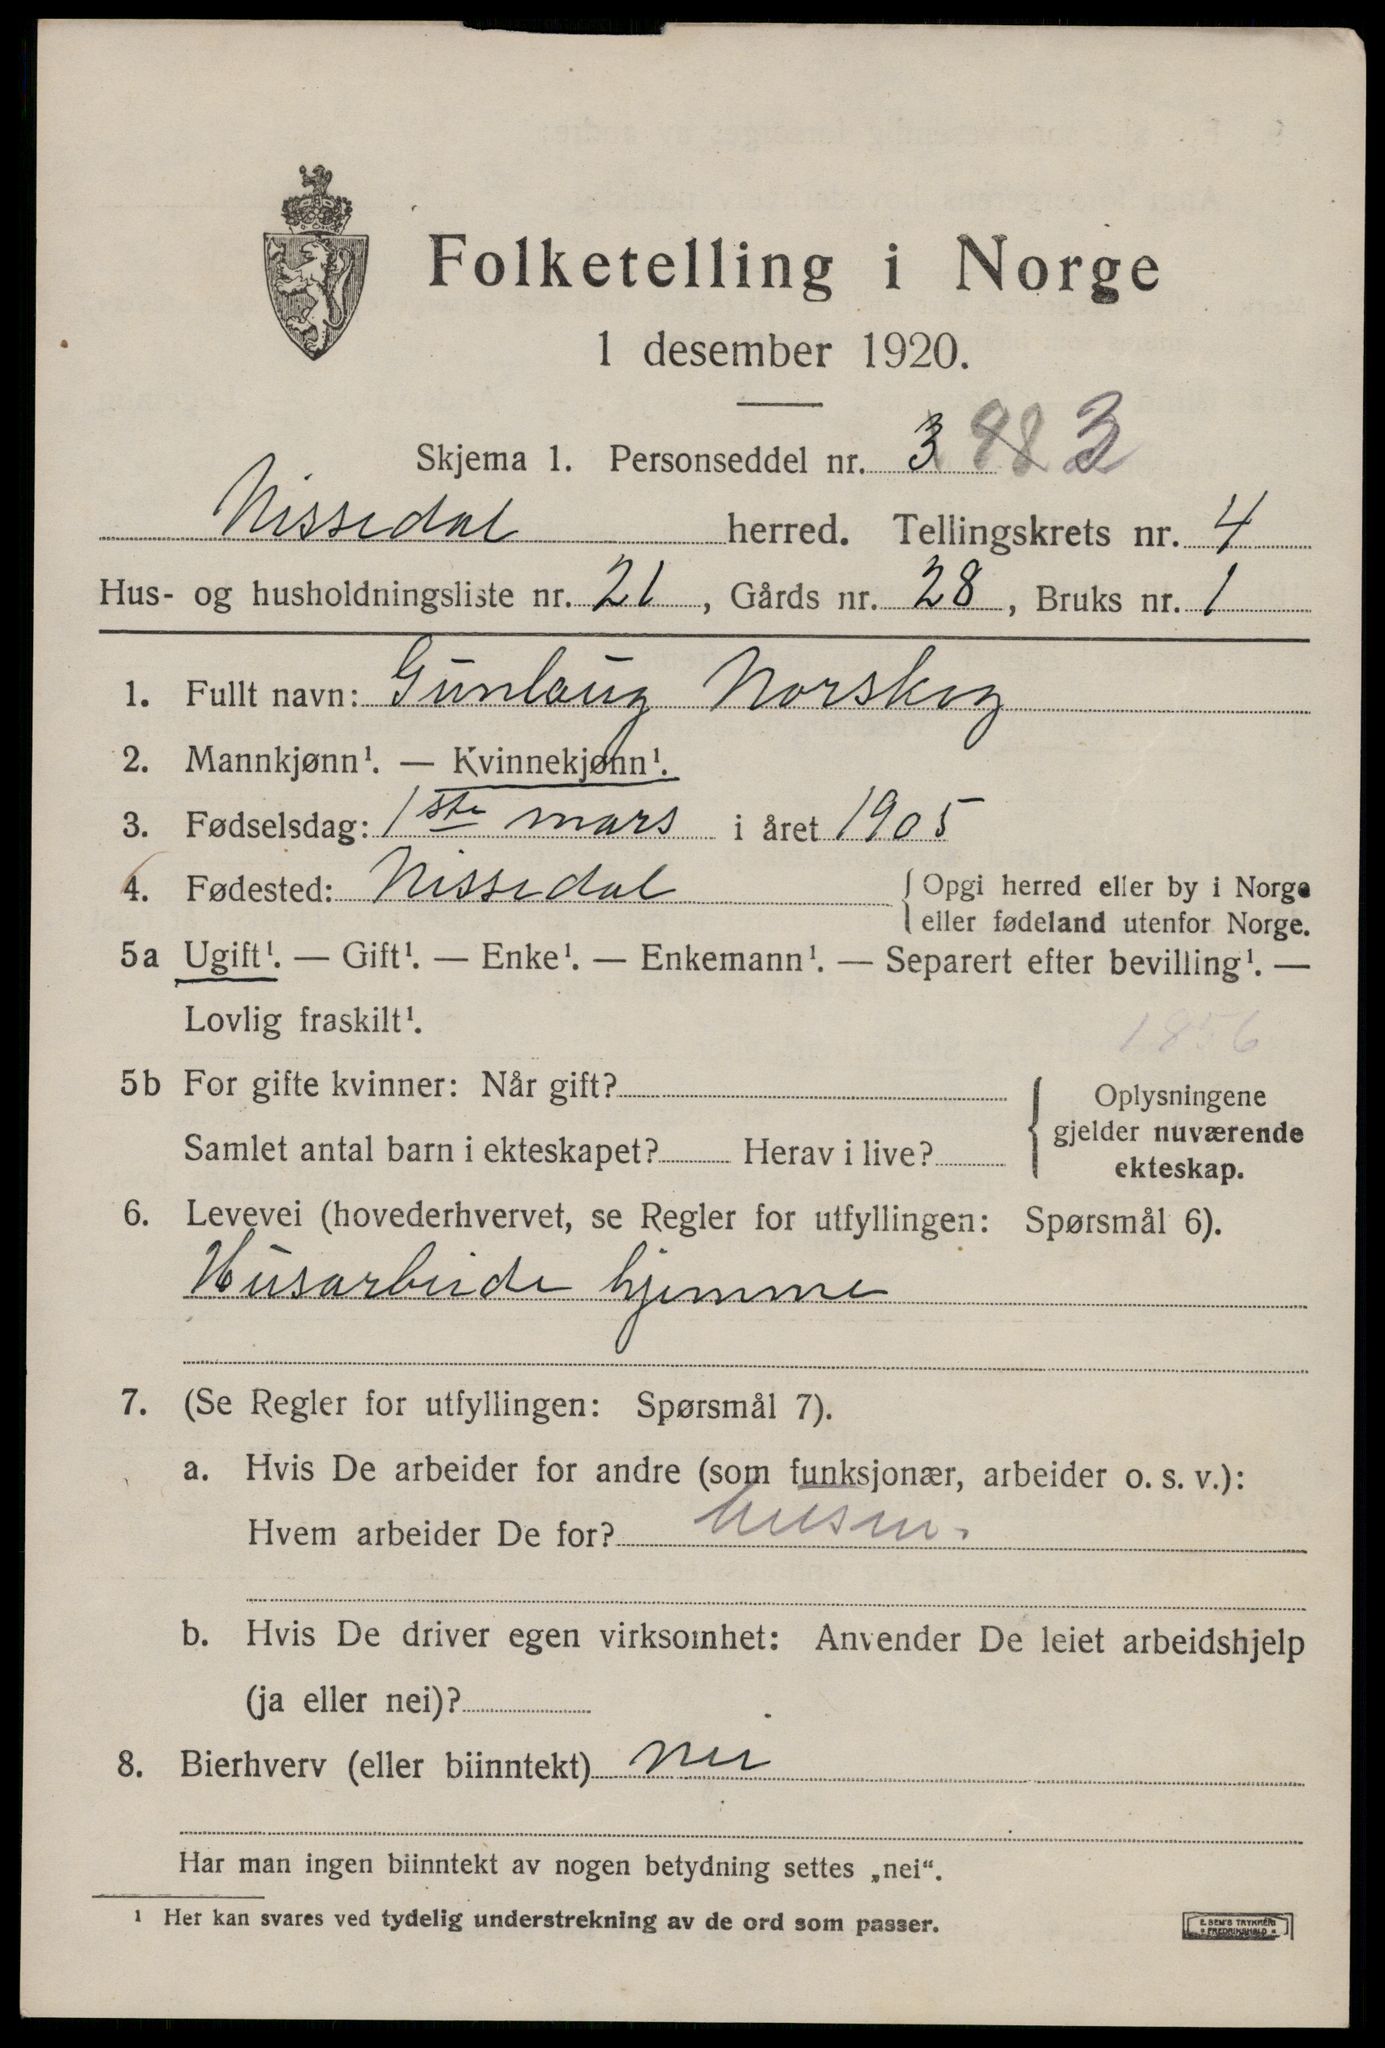 Folketelling i Norge
1 desember 1920.
Skjema 1. Personseddel nr. 3 3
Nissedal herred. Tellingskrets nr. 4
Hus- og husholdningsliste nr. 21, Gårds nr. 28, Bruks nr. 1
1. Fullt navn: Gunlaug Norskog
2. Mannkjønn¹. — Kvinnekjønn¹.
3. Fødselsdag: 1ste mars i året 1905
4. Fødested: Nissedal { Opgi herred eller by i Norge
eller fødeland utenfor Norge.
5a Ugift¹. — Gift¹. — Enke¹. — Enkemann¹. — Separert efter bevilling¹. —
Lovlig fraskilt¹.
1856
5b For gifte kvinner: Når gift? { Oplysningene
gjelder nuværende
Samlet antal barn i ekteskapet? Herav i live?
ekteskap.
6. Levevei (hovederhvervet, se Regler for utfyllingen: Spørsmål 6).
Husarbeide hjemme
7. (Se Regler for utfyllingen: Spørsmål 7).
a. Hvis De arbeider for andre (som funksjonær, arbeider o. s. v.):
Hvem arbeider De for?
b. Hvis De driver egen virksomhet: Anvender De leiet arbeidshjelp
(ja eller nei)?
8. Bierhverv (eller biinntekt) nei
Har man ingen biinntekt av nogen betydning settes „nei“.
¹ Her kan svares ved tydelig understrekning av de ord som passer.
E. SEM'S TRYKKERI
FREDRIKSHALD